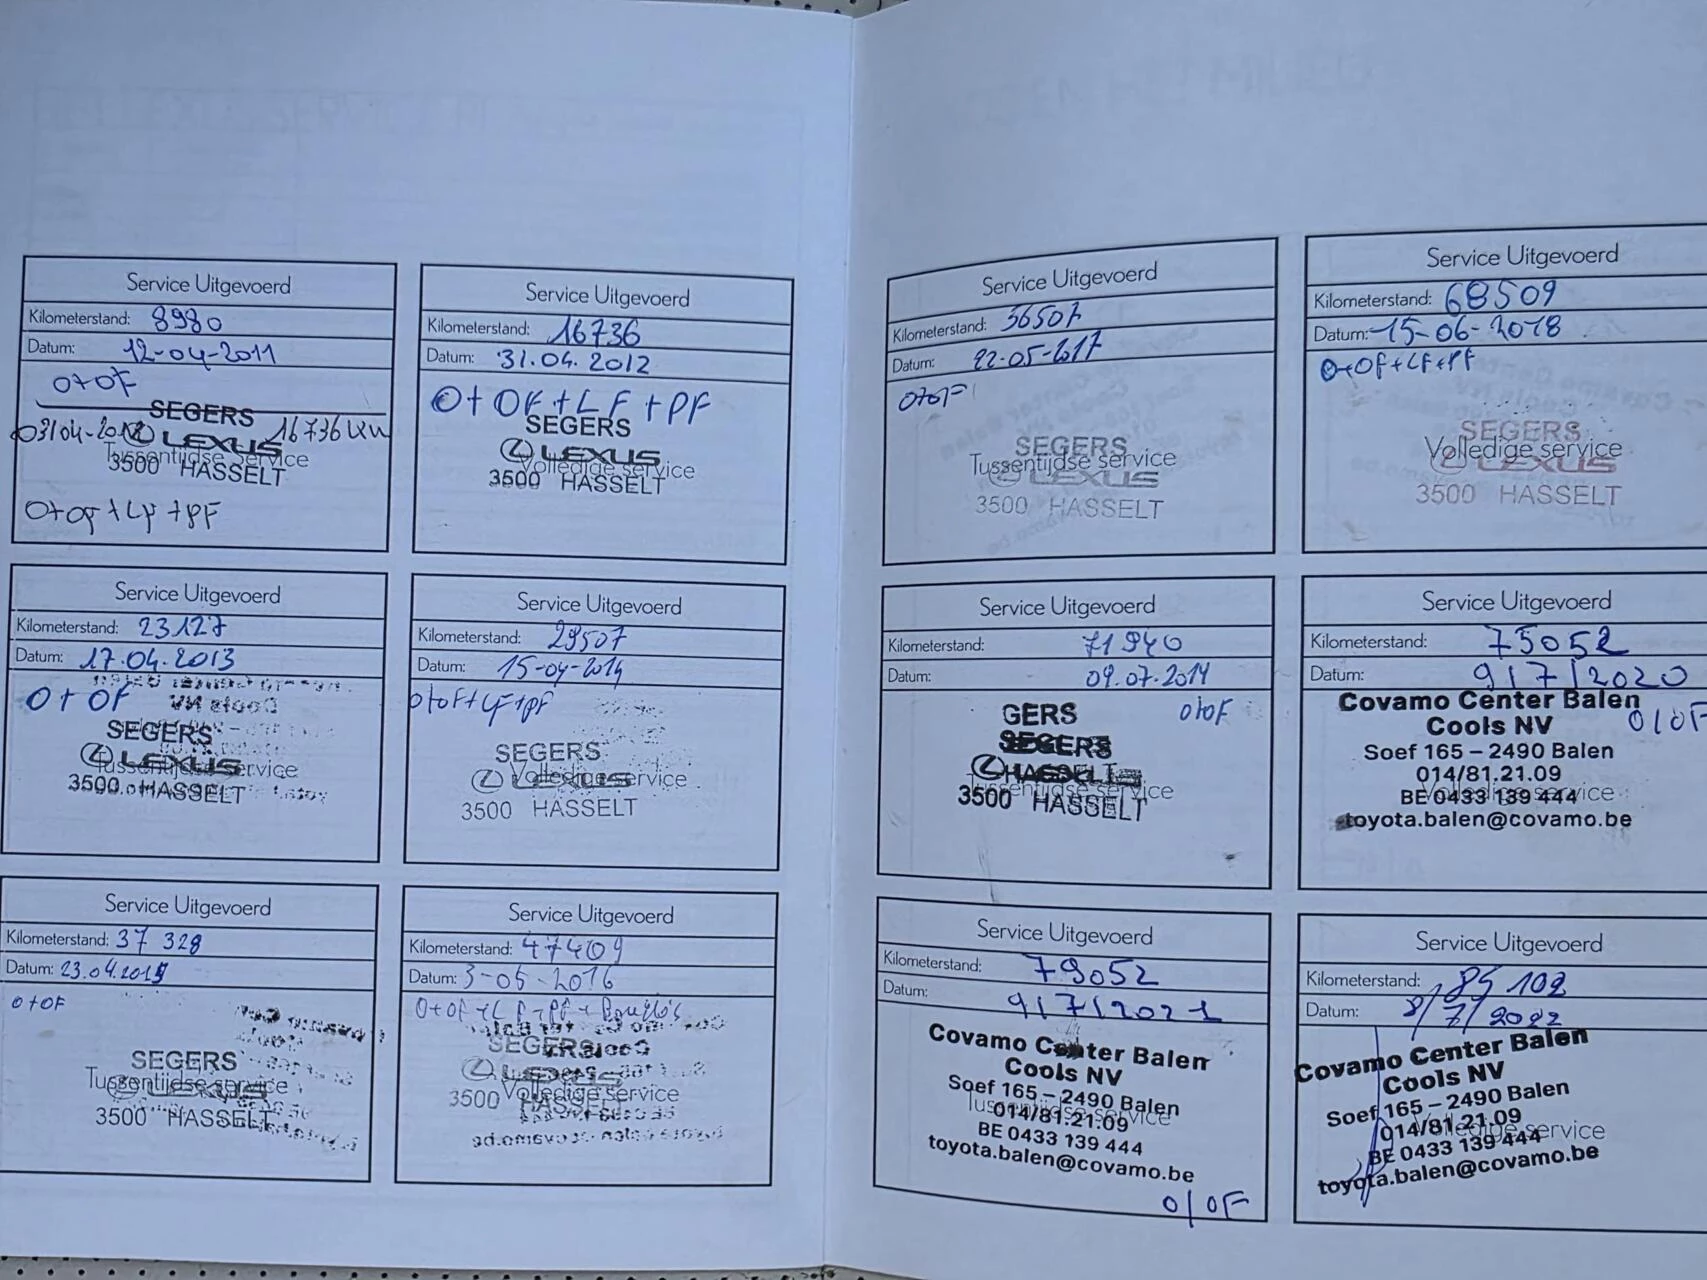 Service Uitgevoerd
Kilometerstand: 8980
Datum: 12-04-2011
O+OF
SEGERS
03/04-2012 LEXUS 16736 km
Tussentijdse service
3500 HASSELT
O+OF+LF+PF
Service Uitgevoerd
Kilometerstand: 16736
Datum: 31.04.2012
O+OF+LF+PF
SEGERS
LEXUS
Volledige service
3500 HASSELT
Service Uitgevoerd
Kilometerstand: 23127
Datum: 17.04.2013
O+OF
SEGERS
LEXUS
Tussentijdse service
3500 HASSELT
Service Uitgevoerd
Kilometerstand: 29507
Datum: 15-04-2014
O+OF+LF+PF
SEGERS
Volledige service
LEXUS
3500 HASSELT
Service Uitgevoerd
Kilometerstand: 37 328
Datum: 23.04.2015
O+OF
SEGERS
Tussentijdse service
LEXUS
3500 HASSELT
Service Uitgevoerd
Kilometerstand: 47409
Datum: 3-05-2016
O+OF+LF+PF+
SEGERS
LEXUS
Volledige service
3500 HASSELT
Service Uitgevoerd
Kilometerstand: 56507
Datum: 22-05-2017
O+OF
SEGERS
Tussentijdse service
LEXUS
3500 HASSELT
Service Uitgevoerd
Kilometerstand: 68509
Datum: 15-06-2018
O+OF+LF+PF
SEGERS
Volledige service
LEXUS
3500 HASSELT
Service Uitgevoerd
Kilometerstand: 71940
Datum: 09.07.2019
O+OF
GERS
SEGERS
HASSELT
Tussentijdse service
3500 HASSELT
Service Uitgevoerd
Kilometerstand: 75052
Datum: 9/7/2020
Covamo Center Balen
Cools NV O/OF
Soef 165 – 2490 Balen
014/81.21.09
BE 0433 139 444
Volledige service
toyota.balen@covamo.be
Service Uitgevoerd
Kilometerstand: 79052
Datum: 9/7/2021
Covamo Center Balen
Cools NV
Soef 165 – 2490 Balen
Tussentijdse service
014/81.21.09
BE 0433 139 444
toyota.balen@covamo.be
O/OF
Service Uitgevoerd
Kilometerstand: 85102
Datum: 8/7/2022
Covamo Center Balen
Cools NV
Soef 165 – 2490 Balen
014/81.21.09
Volledige service
BE 0433 139 444
toyota.balen@covamo.be